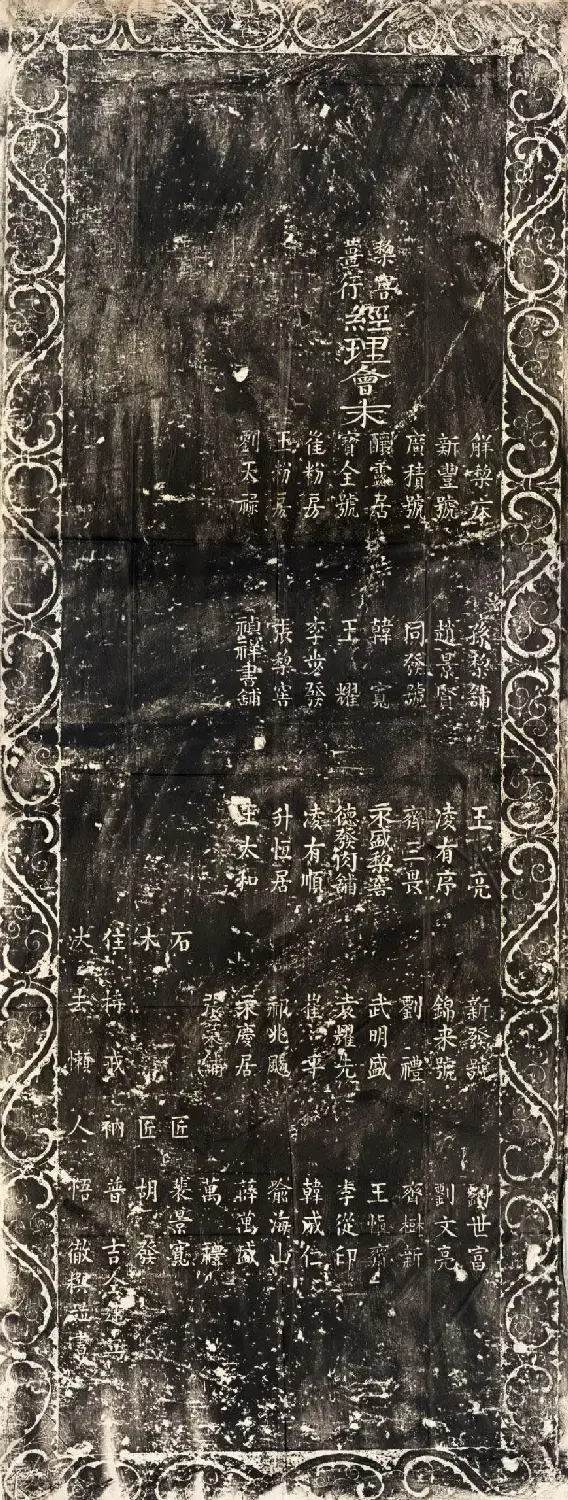 梨窖
薑行
經理會末
解梨店 孫梨舖 王亮 新發號 劉世富
新豐號 趙景賢 凌有序 錦來號 劉文亮
廣積號 同發號 齊三畏 劉禮 齊樹新
釀靈居 韓寬 永盛梨窖 武明盛 王惟齋
寶全號 王耀 德發肉舖 袁耀先 李從印
崔粉房 李步發 凌有順 崔 韓成仁
王粉房 張梨窖 升恆居 祁兆颺 俞海山
劉天祿 禎祥書舖 王太和 永慶居 薛萬盛
張菜舖 萬
石匠 裴景寬
木匠 胡發
住持戒衲普吉仝建立
去懶人悟徹撰並書